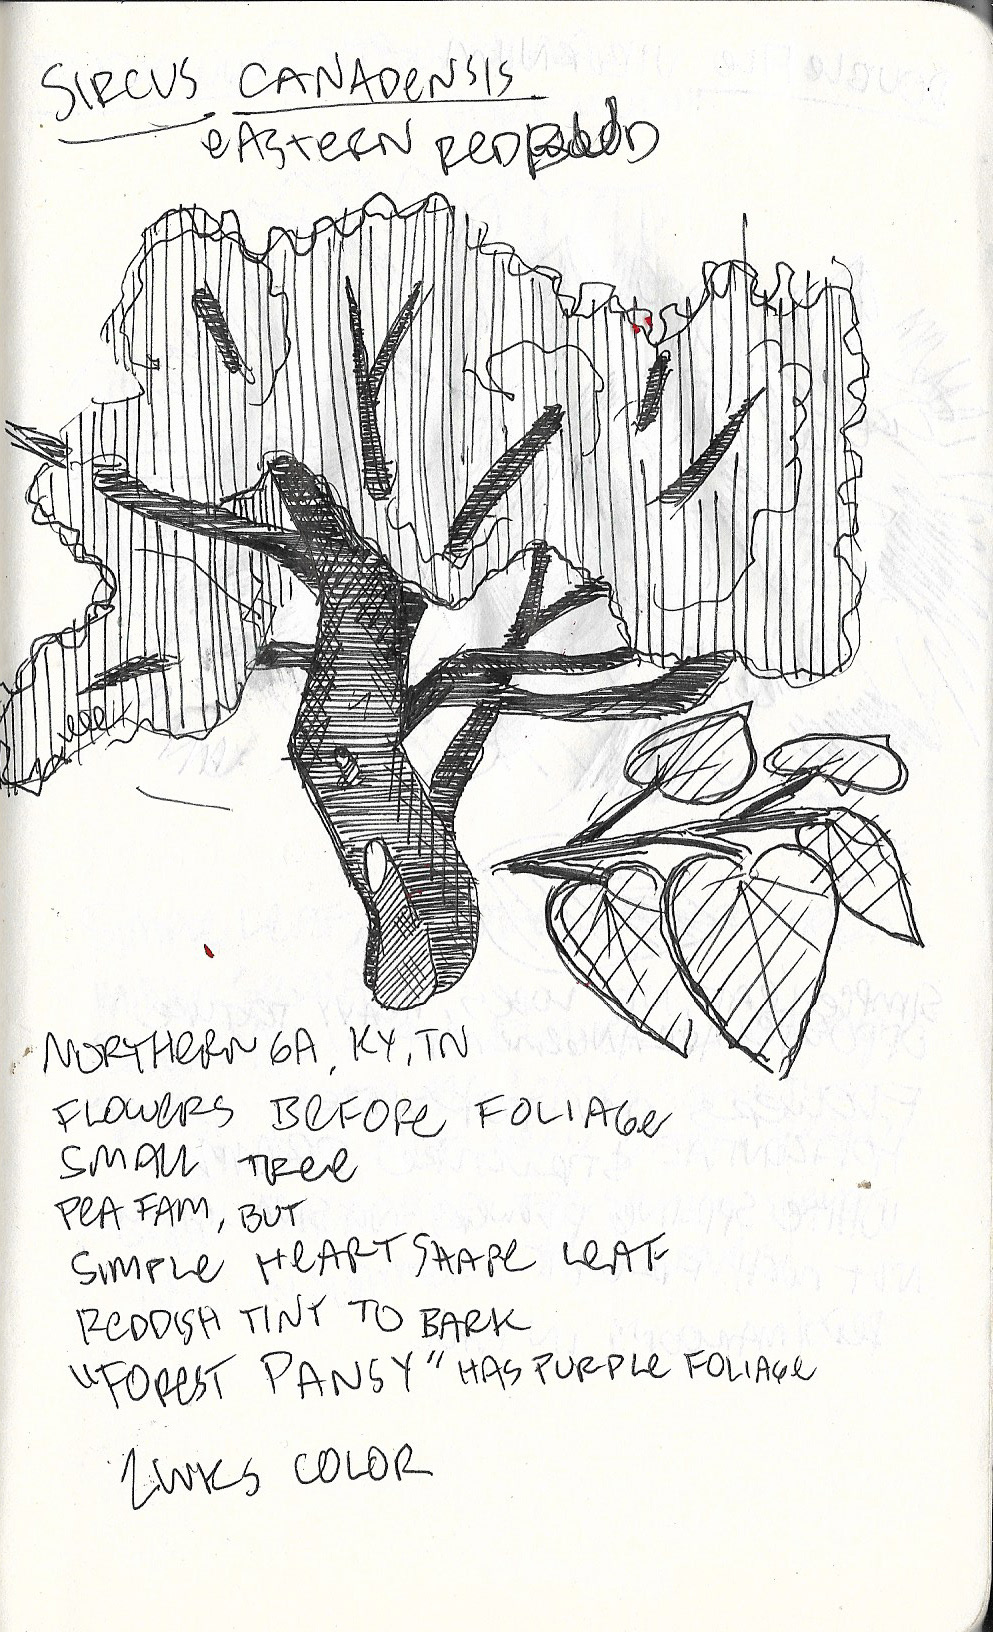 SIRCUS CANADENSIS
EASTERN REDBUD
NORTHERN GA, KY, TN
FLOWERS BEFORE FOLIAGE
SMALL TREE
PEA FAM, BUT
SIMPLE HEART SHAPE LEAF
REDDISH TINT TO BARK
"FOREST PANSY" HAS PURPLE FOLIAGE
2 WKS COLOR